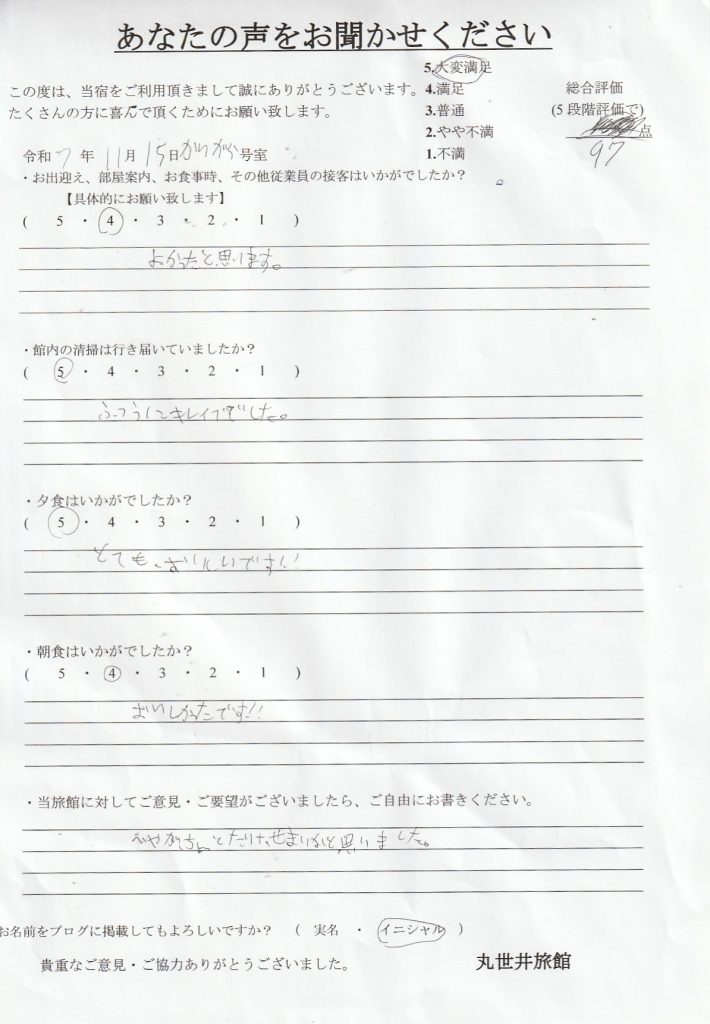 あなたの声をお聞かせください
この度は、当宿をご利用頂きまして誠にありがとうございます。
たくさんの方に喜んで頂くためにお願い致します。
5.大変満足
4.満足
3.普通
2.やや不満
1.不満
総合評価
(5段階評価で)
点
97
令和 7 年 11月 15日 号室
・お出迎え、部屋案内、お食事時、その他従業員の接客はいかがでしたか？
【具体的にお願い致します】
( 5 ・ 4 ・ 3 ・ 2 ・ 1 )
よかったと思います。
・館内の清掃は行き届いていましたか？
( 5 ・ 4 ・ 3 ・ 2 ・ 1 )
ふつうにキレイでした。
・夕食はいかがでしたか？
( 5 ・ 4 ・ 3 ・ 2 ・ 1 )
とても、おいしいです!!
・朝食はいかがでしたか？
( 5 ・ 4 ・ 3 ・ 2 ・ 1 )
おいしかったです!!
・当旅館に対してご意見・ご要望がございましたら、ご自由にお書きください。
せまいなと思いました。
お名前をブログに掲載してもよろしいですか？ ( 実名 ・ イニシャル )
貴重なご意見・ご協力ありがとうございました。
丸世井旅館